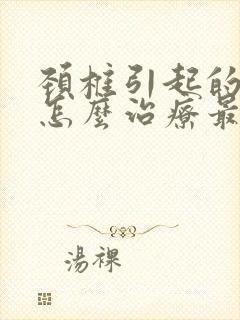 頚椎引起的
怎麼治療最
湯裸